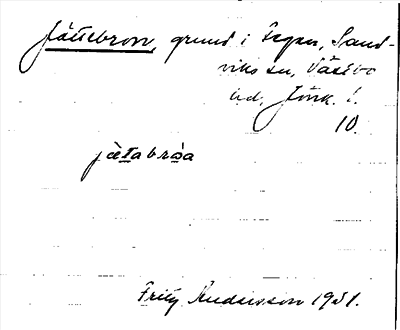 Jättebron, grund i Fegen, Sand-
viks sn, Västbo
hd, Jönk. l.
10.
jätabròa
Fritz Andersson 1931.